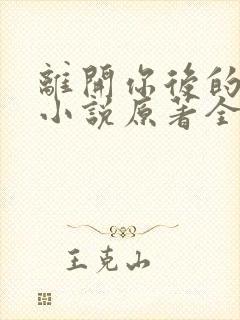 離開你後的
小說原著全
王克山